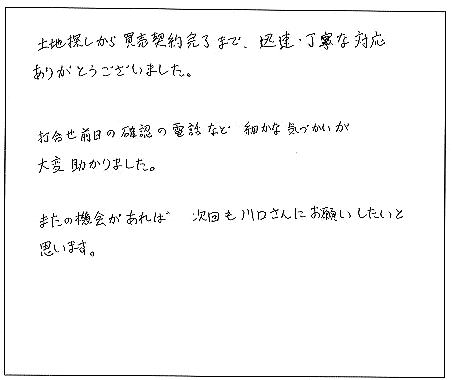 土地探しから買売契約完了まで、迅速・丁寧な対応
ありがとうございました。
打合せ前日の確認の電話など 細かな気づかいが
大変助かりました。
またの機会があれば 次回も川口さんにお願いしたいと
思います。